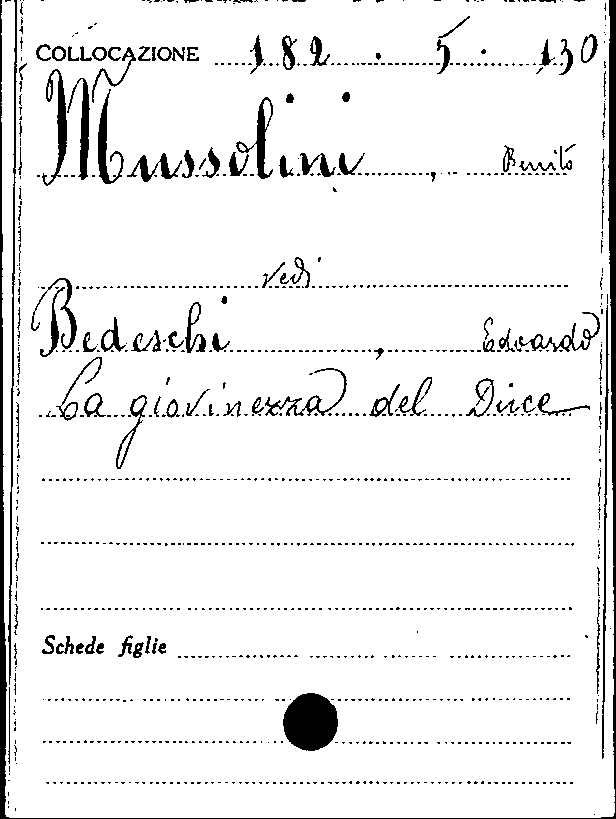 COLLOCAZIONE 182 . 5 . 130
Mussolini , Benito
vedi
Bedeschi , Edoardo
La giovinezza del Duce
Schede figlie